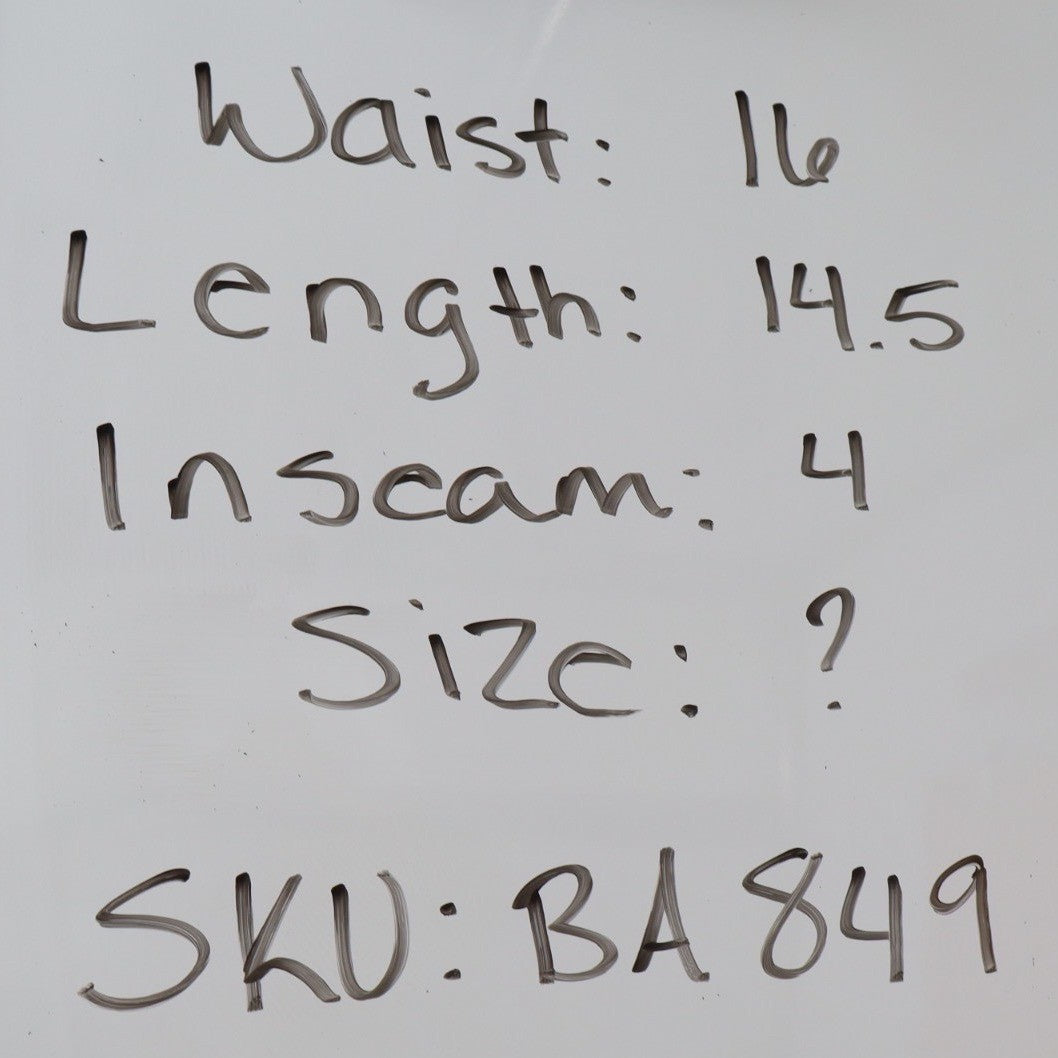 Waist: 16
Length: 14.5
Inseam: 4
Size: ?
SKU: BA849